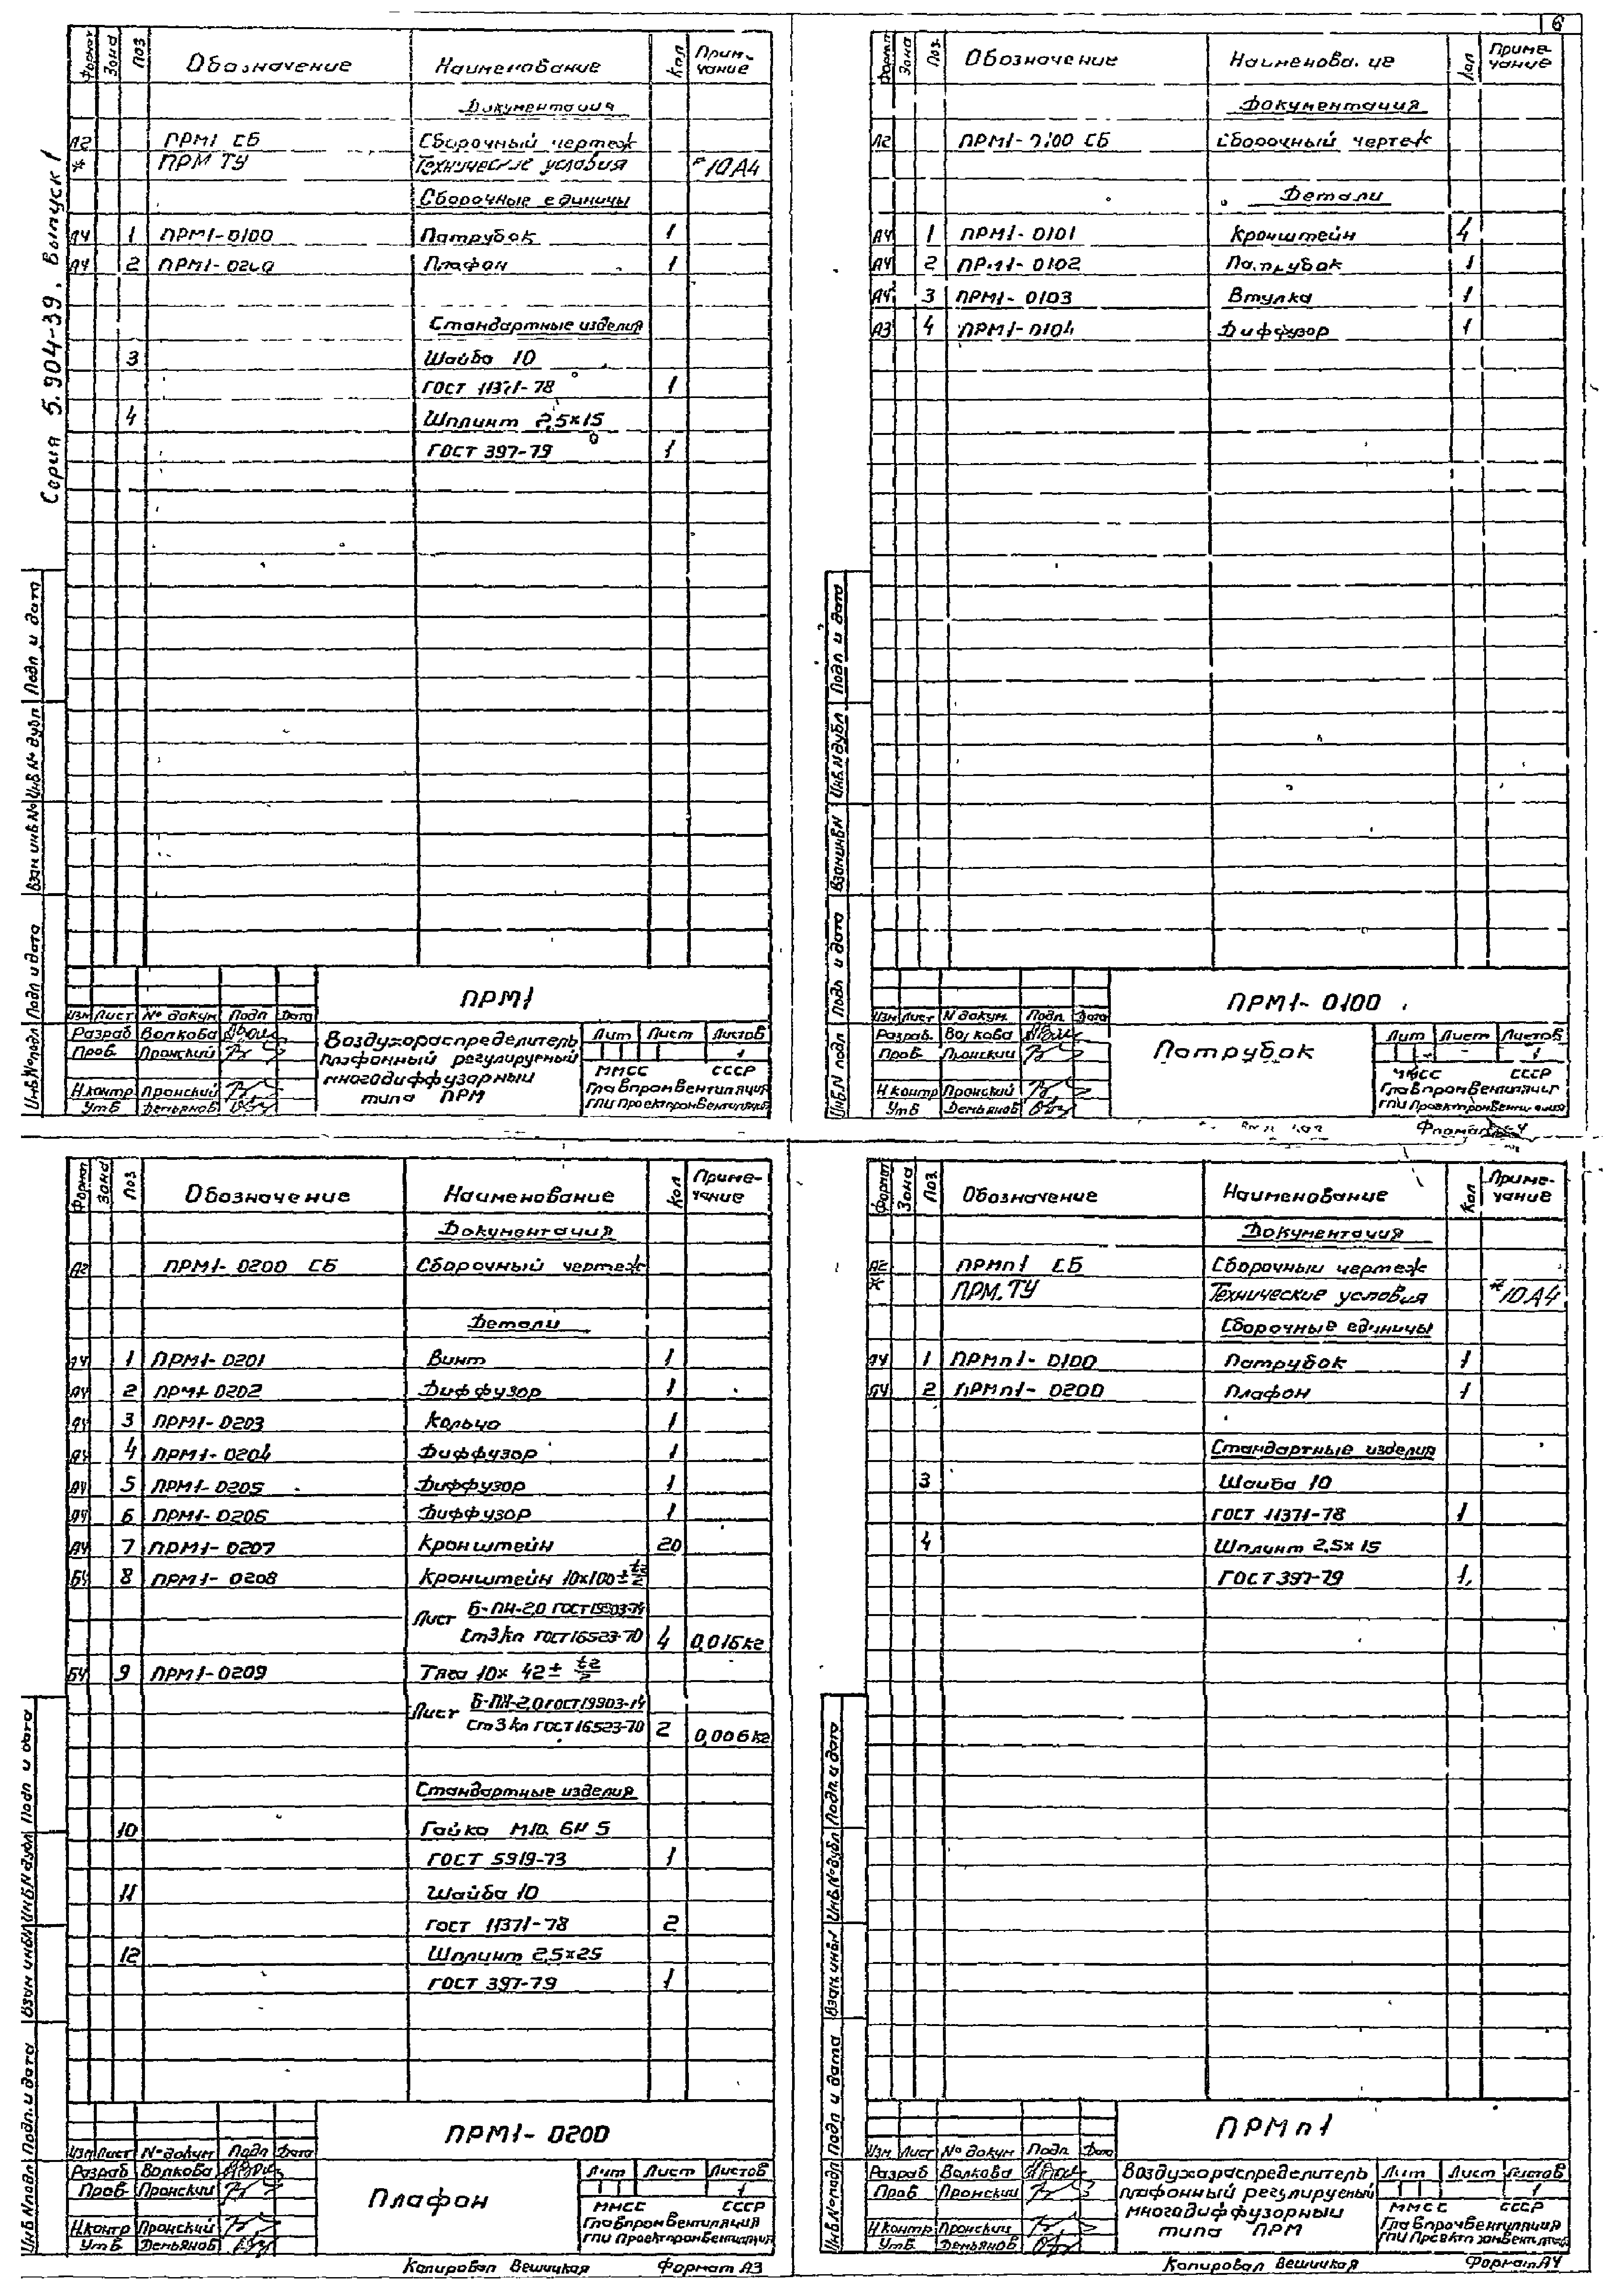 6
Серия 5.904-39. Выпуск 1
Формат Зона Поз. Обозначение Наименование Кол Приме-чание
Документация
А2 ПРМ1 СБ Сборочный чертеж
* ПРМ ТУ Технические условия *10А4
Сборочные единицы
А4 1 ПРМ1-0100 Патрубок 1
А4 2 ПРМ1-0200 Плафон 1
Стандартные изделия
3 Шайба 10
ГОСТ 11371-78 1
4 Шплинт 2,5×15
ГОСТ 397-79 1
Инв.№ подл Подп и дата Взам инв № Инв № дубл Подп и дата
ПРМ1
Изм Лист № докум Подп Дата
Разраб Волкова
Пров. Пронский
Н.контр Пронский
Утв Демьянов
Воздухораспределитель
плафонный регулируемый
многодиффузорный
типа ПРМ
Лит Лист Листов
1
ММСС СССР
Главпромвентиляция
ГПИ Проектпромвентиляция
Зона Поз. Обозначение Кол Приме-чание
Документация
А2 СБ Сборочный чертеж
Детали
А4 1 ПРМ1-0101 Кронштейн 4
А4 2 ПРМ1-0102 Патрубок 1
А4 3 ПРМ1-0103 Втулка 1
А3 4 ПРМ1-0104 Диффузор 1
Инв.№ подл Подп и дата Взам инв № Инв.№ дубл Подп и дата
ПРМ1-0100
Изм Лист № докум. Подп. Дата
Разраб. Волкова
Пров Пронский
Н.контр Пронский
Утв Демьянов
Патрубок
Лит Лист Листов
1
ММСС СССР
Главпромвентиляция
ГПИ Проектпромвентиляция
Формат
Формат Зона Поз Обозначение Наименование Кол Приме-чание
Документация
А2 ПРМ1-0200 СБ Сборочный чертеж
Детали
А4 1 ПРМ1-0201 Винт 1
А4 2 ПРМ1-0202 Диффузор 1
А4 3 ПРМ1-0203 Кольцо 1
А4 4 ПРМ1-0204 Диффузор 1
А4 5 ПРМ1-0205 Диффузор 1
А4 6 ПРМ1-0206 Диффузор 1
А4 7 ПРМ1-0207 Кронштейн 20
БЧ 8 ПРМ1-0208 Кронштейн 10×100±t2/2
Лист Б-ПН-2,0 ГОСТ19903-74
Ст3кп ГОСТ16523-70 4 0,016кг
БЧ 9 ПРМ1-0209 Тяга 10× 42± t2/2
Лист Б-ПН-2,0 ГОСТ19903-74
Ст3кп ГОСТ16523-70 2 0,006кг
Стандартные изделия
10 Гайка М10. 6Н 5
ГОСТ 5919-73 1
11 Шайба 10
ГОСТ 11371-78 2
12 Шплинт 2,5×25
ГОСТ 397-79 1
Инв.№ подл Подп. и дата Взам инв.№ Инв.№ дубл Подп и дата
ПРМ1-0200
Изм Лист № докум Подп Дата
Разраб Волкова
Пров Пронский
Н.контр Пронский
Утв. Демьянов
Плафон
Лит Лист Листов
1
ММСС СССР
Главпромвентиляция
ГПИ Проектпромвентиляция
Копировал Вешицкая Формат А3
Формат Зона Поз. Обозначение Наименование Кол Приме-чание
Документация
А2 ПРМп1 СБ Сборочный чертеж
* ПРМ.ТУ Технические условия *10А4
Сборочные единицы
А4 1 ПРМп1-0100 Патрубок 1
А4 2 ПРМп1-0200 Плафон 1
Стандартные изделия
3 Шайба 10
ГОСТ 11371-78 1
4 Шплинт 2,5×15
ГОСТ 397-79 1
Инв.№ подл Подп и дата Взам. инв.№ Инв.№ дубл Подп. и дата
ПРМп1
Изм Лист № докум Подп Дата
Разраб Волкова
Пров Пронский
Н.контр Пронский
Утв Демьянов
Воздухораспределитель
плафонный регулируемый
многодиффузорный
типа ПРМ
Лит Лист Листов
1
ММСС СССР
Главпромвентиляция
ГПИ Проектпромвентиляция
Копировал Вешицкая Формат А4